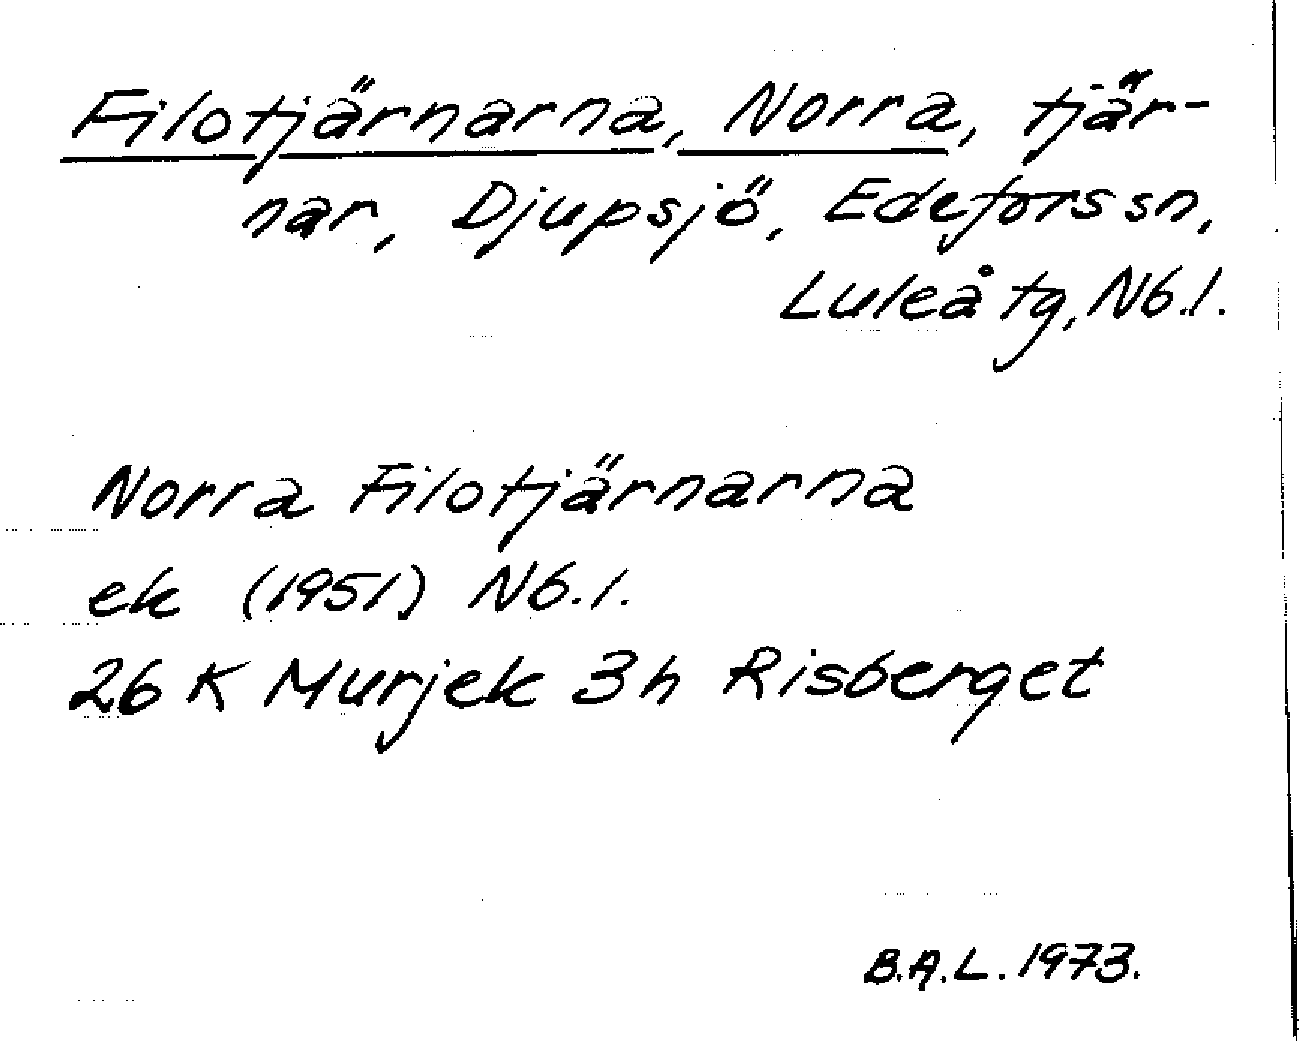 Filotjärnarna, Norra, tjär-
nar, Djupsjö, Edefors sn,
Luleå tg, Nb.l.
Norra Filotjärnarna
ek (1951) Nb.l.
26 K Murjek 3h Risberget
B.A.L. 1973.